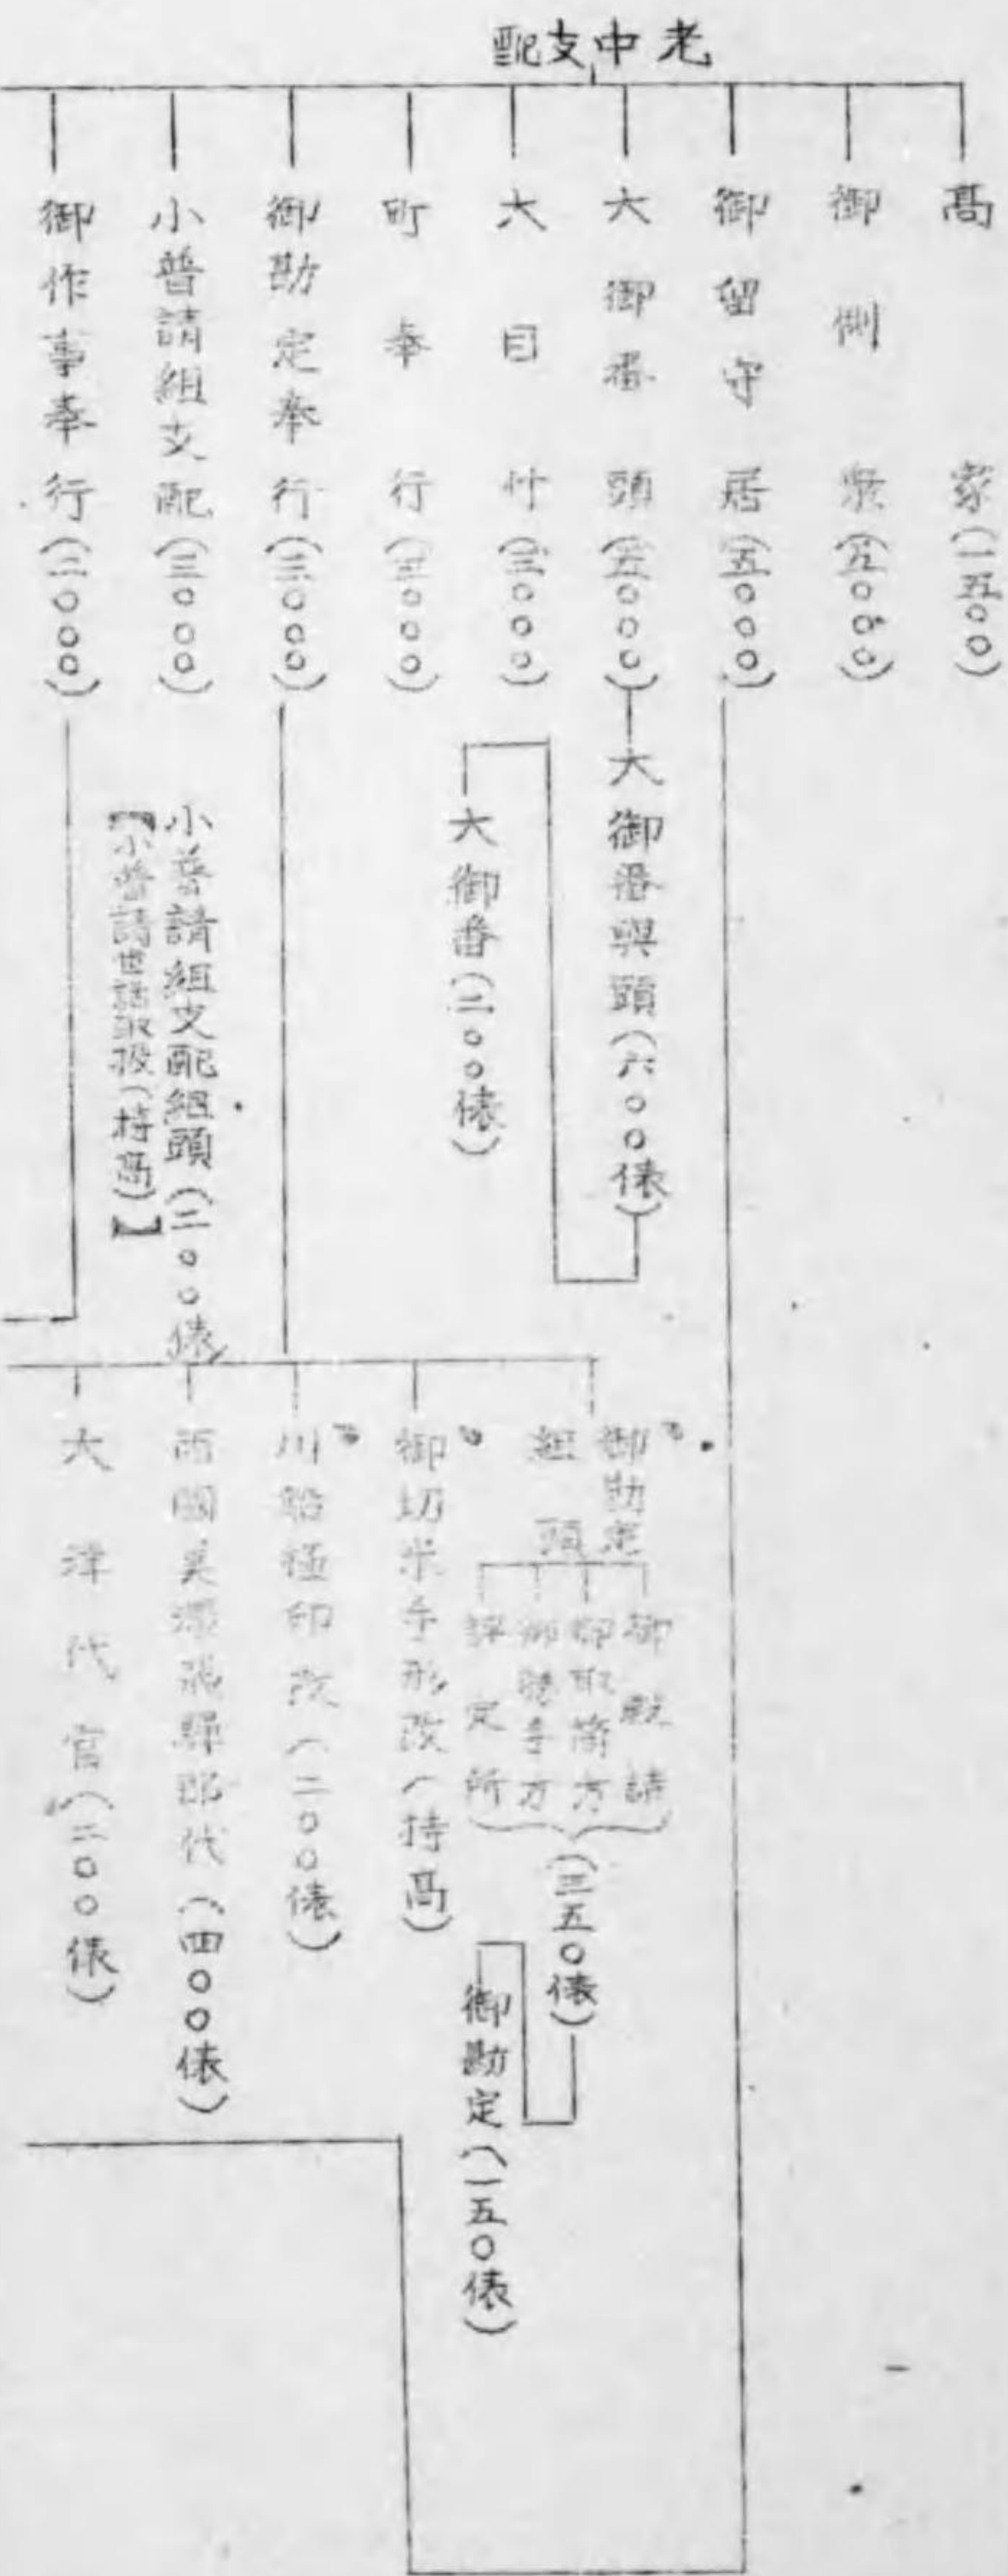 老中支配
高家(一五〇〇)
御側衆(五〇〇〇)
御留守居(五〇〇〇)
大御番頭(五〇〇〇)
大御番與頭(六〇〇俵)
大御番(二〇〇俵)
大目付(三〇〇〇)
町奉行(三〇〇〇)
御勘定奉行(三〇〇〇)
小普請組支配(三〇〇〇)
小普請組支配組頭(二〇〇俵)
【小普請世話取扱(持高)】
御作事奉行(二〇〇〇)
御勘定
組頭
御殿詰
御取箇方
御勝手方
評定所
(三五〇俵)
御勘定(一五〇俵)
御切米手形改(持高)
川船極印改(二〇〇俵)
西國美濃飛騨郡代(四〇〇俵)
大津代官(二〇〇俵)